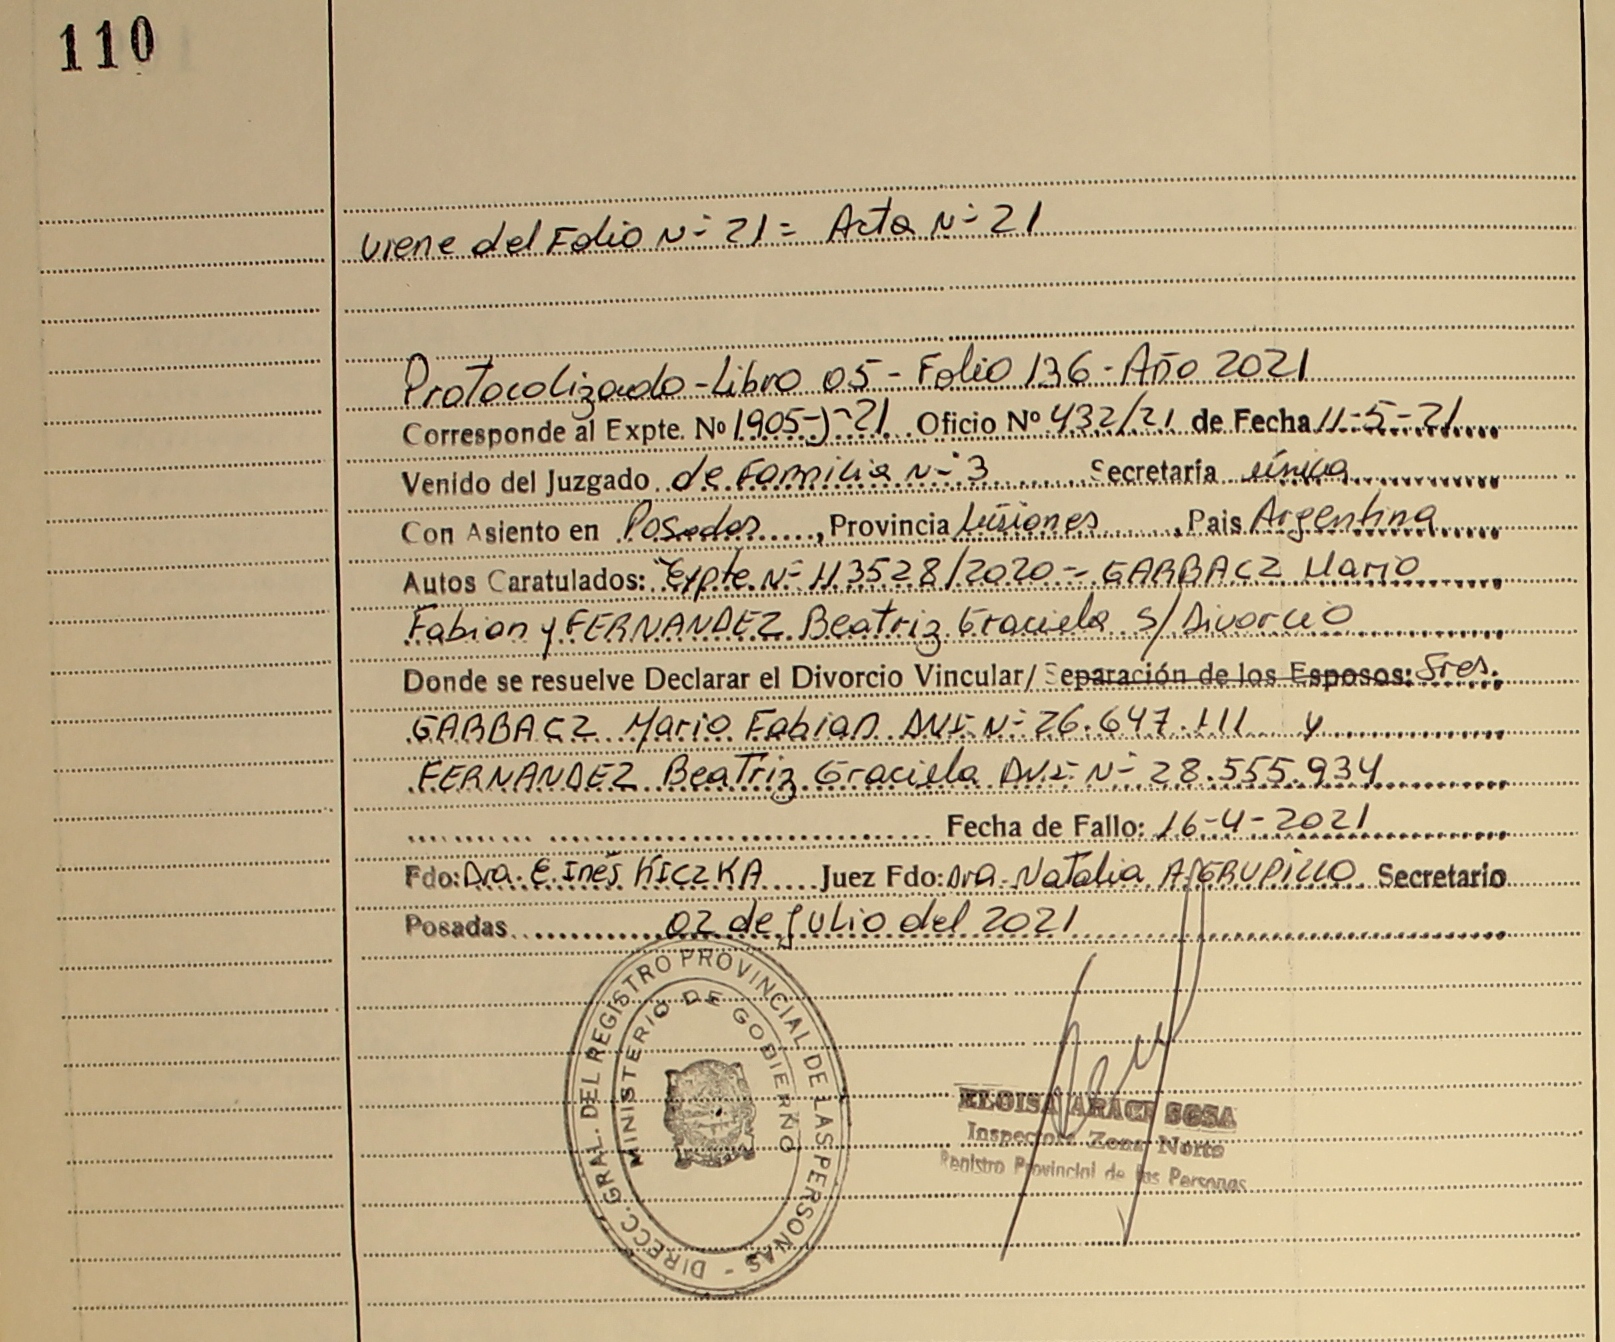 110
viene del Folio Nº 21 = Acta Nº 21
Protocolizado - Libro 05 - Folio 136 - Año 2021
Corresponde al Expte. Nº 1905-J-21 Oficio Nº 432/21 de Fecha 11-5-21
Venido del Juzgado de Familia Nº 3 Secretaria única
Con Asiento en Posadas, Provincia Misiones, Pais Argentina
Autos Caratulados: "Expte Nº 113528/2020 - GARBACZ Mario
Fabian y FERNANDEZ Beatriz Graciela S/ Divorcio
Donde se resuelve Declarar el Divorcio Vincular/ Separación de los Esposos: Sres.
GARBACZ Mario Fabian DNI Nº 26.647.111 y
FERNANDEZ Beatriz Graciela DNI Nº 28.555.934
Fecha de Fallo: 16-4-2021
Fdo: Dra. E. Inés KICZKA Juez Fdo: Dra. Natalia Secretario
Posadas 02 de Julio del 2021
DIRECC. GRAL. DEL REGISTRO PROVINCIAL DE LAS PERSONAS -
MINISTERIO DE GOBIERNO
ELOISA ARACI SOSA
Inspectora Zona Norte
Registro Provincial de las Personas